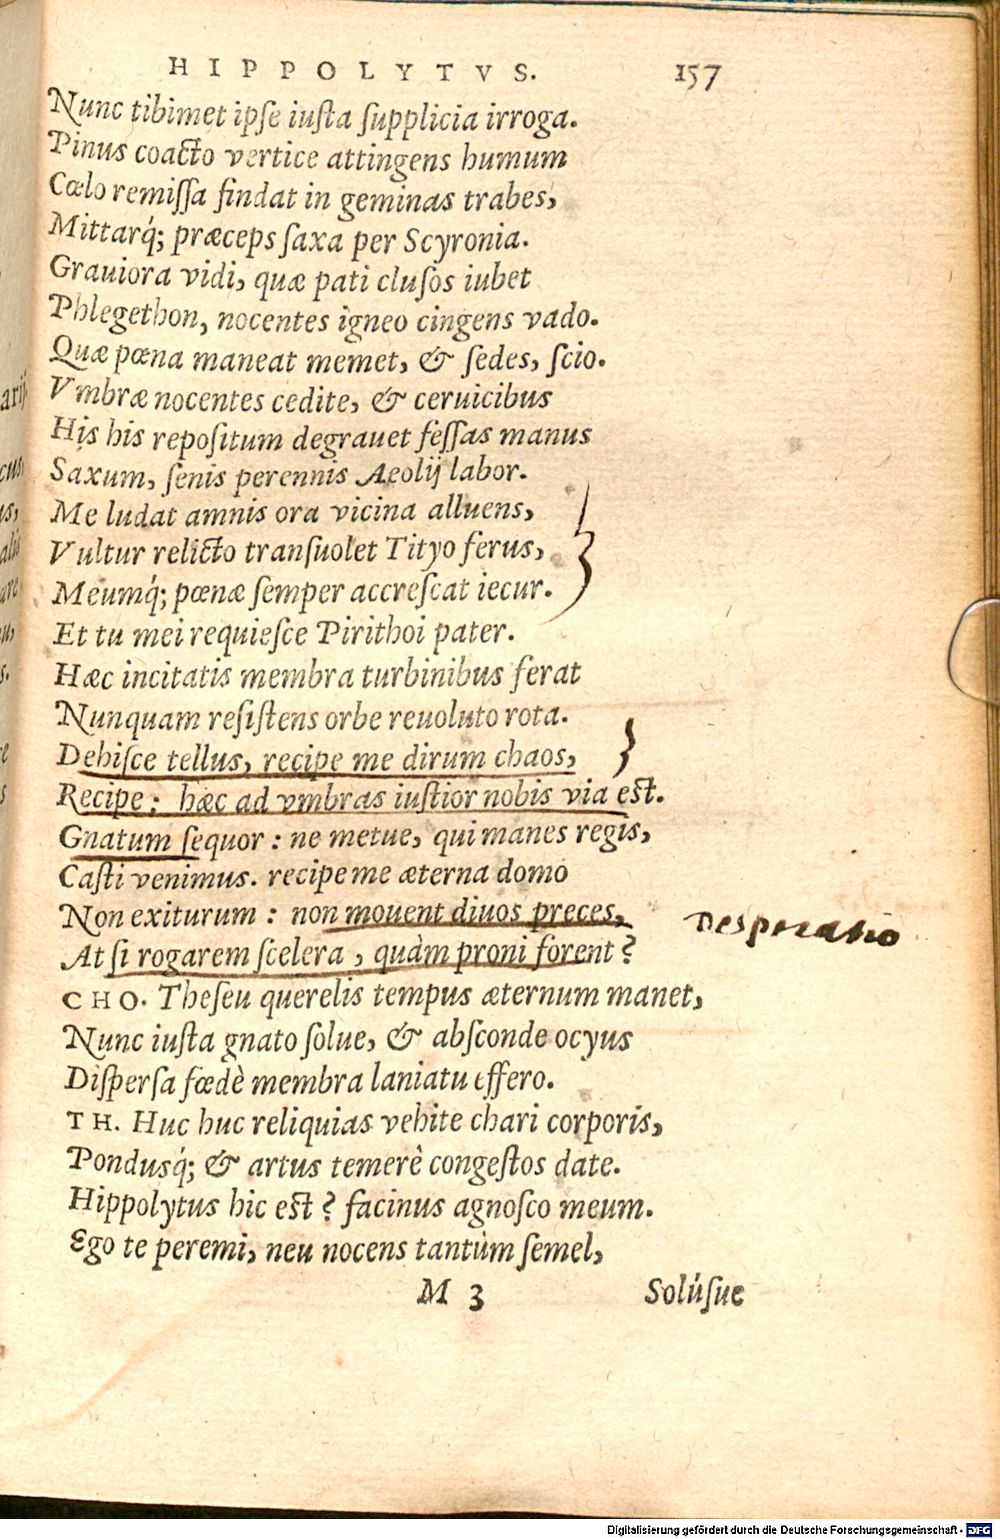 HIPPOLYTVS. 157
Nunc tibimet ipſe iuſta ſupplicia irroga.
Pinus coacto vertice attingens humum
Cœlo remiſſa findat in geminas trabes,
Mittarq́; præceps ſaxa per Scyronia.
Grauiora vidi, quæ pati cluſos iubet
Phlegethon, nocentes igneo cingens vado.
Quæ pœna maneat memet, & ſedes, ſcio.
Vmbræ nocentes cedite, & ceruicibus
His his repoſitum degrauet feſſas manus
Saxum, ſenis perennis Aeolij labor.
Me ludat amnis ora vicina alluens,
Vultur relicto tranſuolet Tityo ferus,
Meumq́; pœnæ ſemper accreſcat iecur.
Et tu mei requieſce Pirithoi pater.
Hæc incitatis membra turbinibus ferat
Nunquam reſiſtens orbe reuoluto rota.
Dehiſce tellus, recipe me dirum chaos,
Recipe: hæc ad vmbras iuſtior nobis via eſt.
Gnatum ſequor: ne metue, qui manes regis,
Caſti venimus. recipe me æterna domo
Non exiturum: non mouent diuos preces,
Desperatio
At ſi rogarem ſcelera, quàm proni forent?
CHO. Theſeu querelis tempus æternum manet,
Nunc iuſta gnato ſolue, & abſconde ocyus
Diſperſa fœdè membra laniatu effero.
TH. Huc huc reliquias vehite chari corporis,
Pondusq́; & artus temerè congeſtos date.
Hippolytus hic eſt? facinus agnoſco meum.
Ego te peremi, neu nocens tantùm ſemel,
M 3 Solúſue
arij
cus
us,
alis
are
u,
s.
re
s
Digitalisierung gefördert durch die Deutsche Forschungsgemeinschaft - DFG